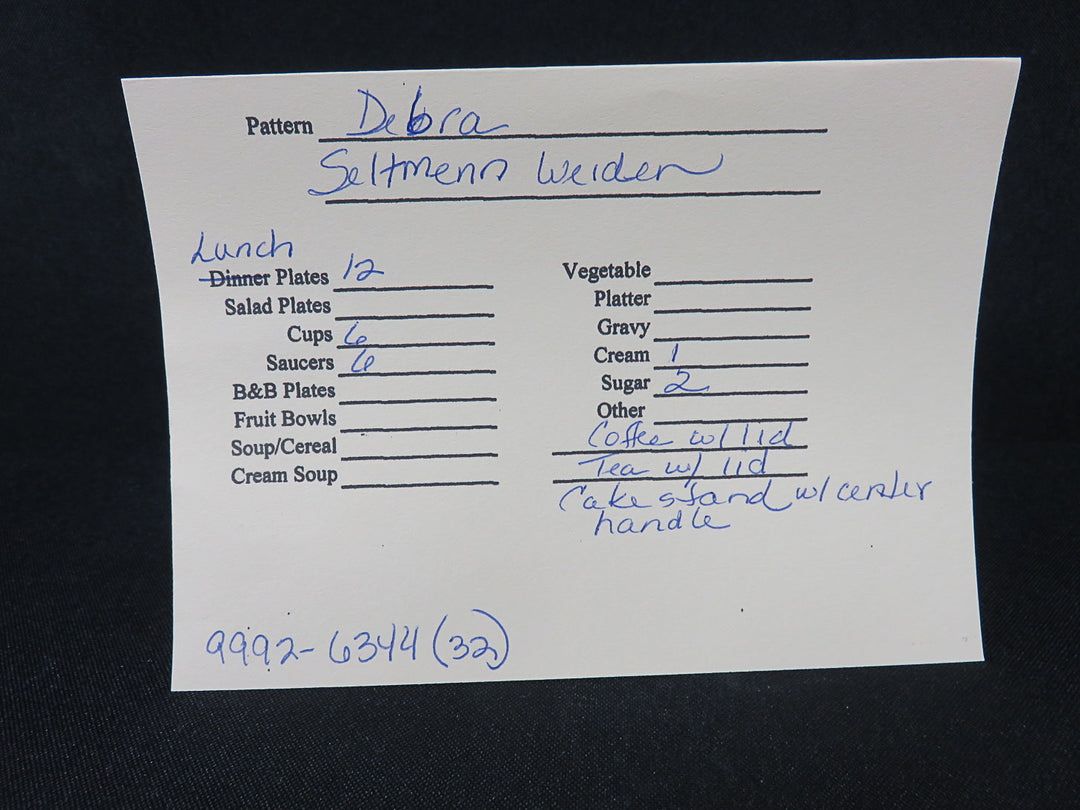 Pattern Debra
Seltmenn Weiden
Lunch
Dinner Plates 12
Salad Plates
Cups 6
Saucers 6
B&B Plates
Fruit Bowls
Soup/Cereal
Cream Soup
Vegetable
Platter
Gravy
Cream 1
Sugar 2
Other
Coffee w/ lid
Tea w/ lid
Cake stand w/ center
handle
9992-6344 (32)